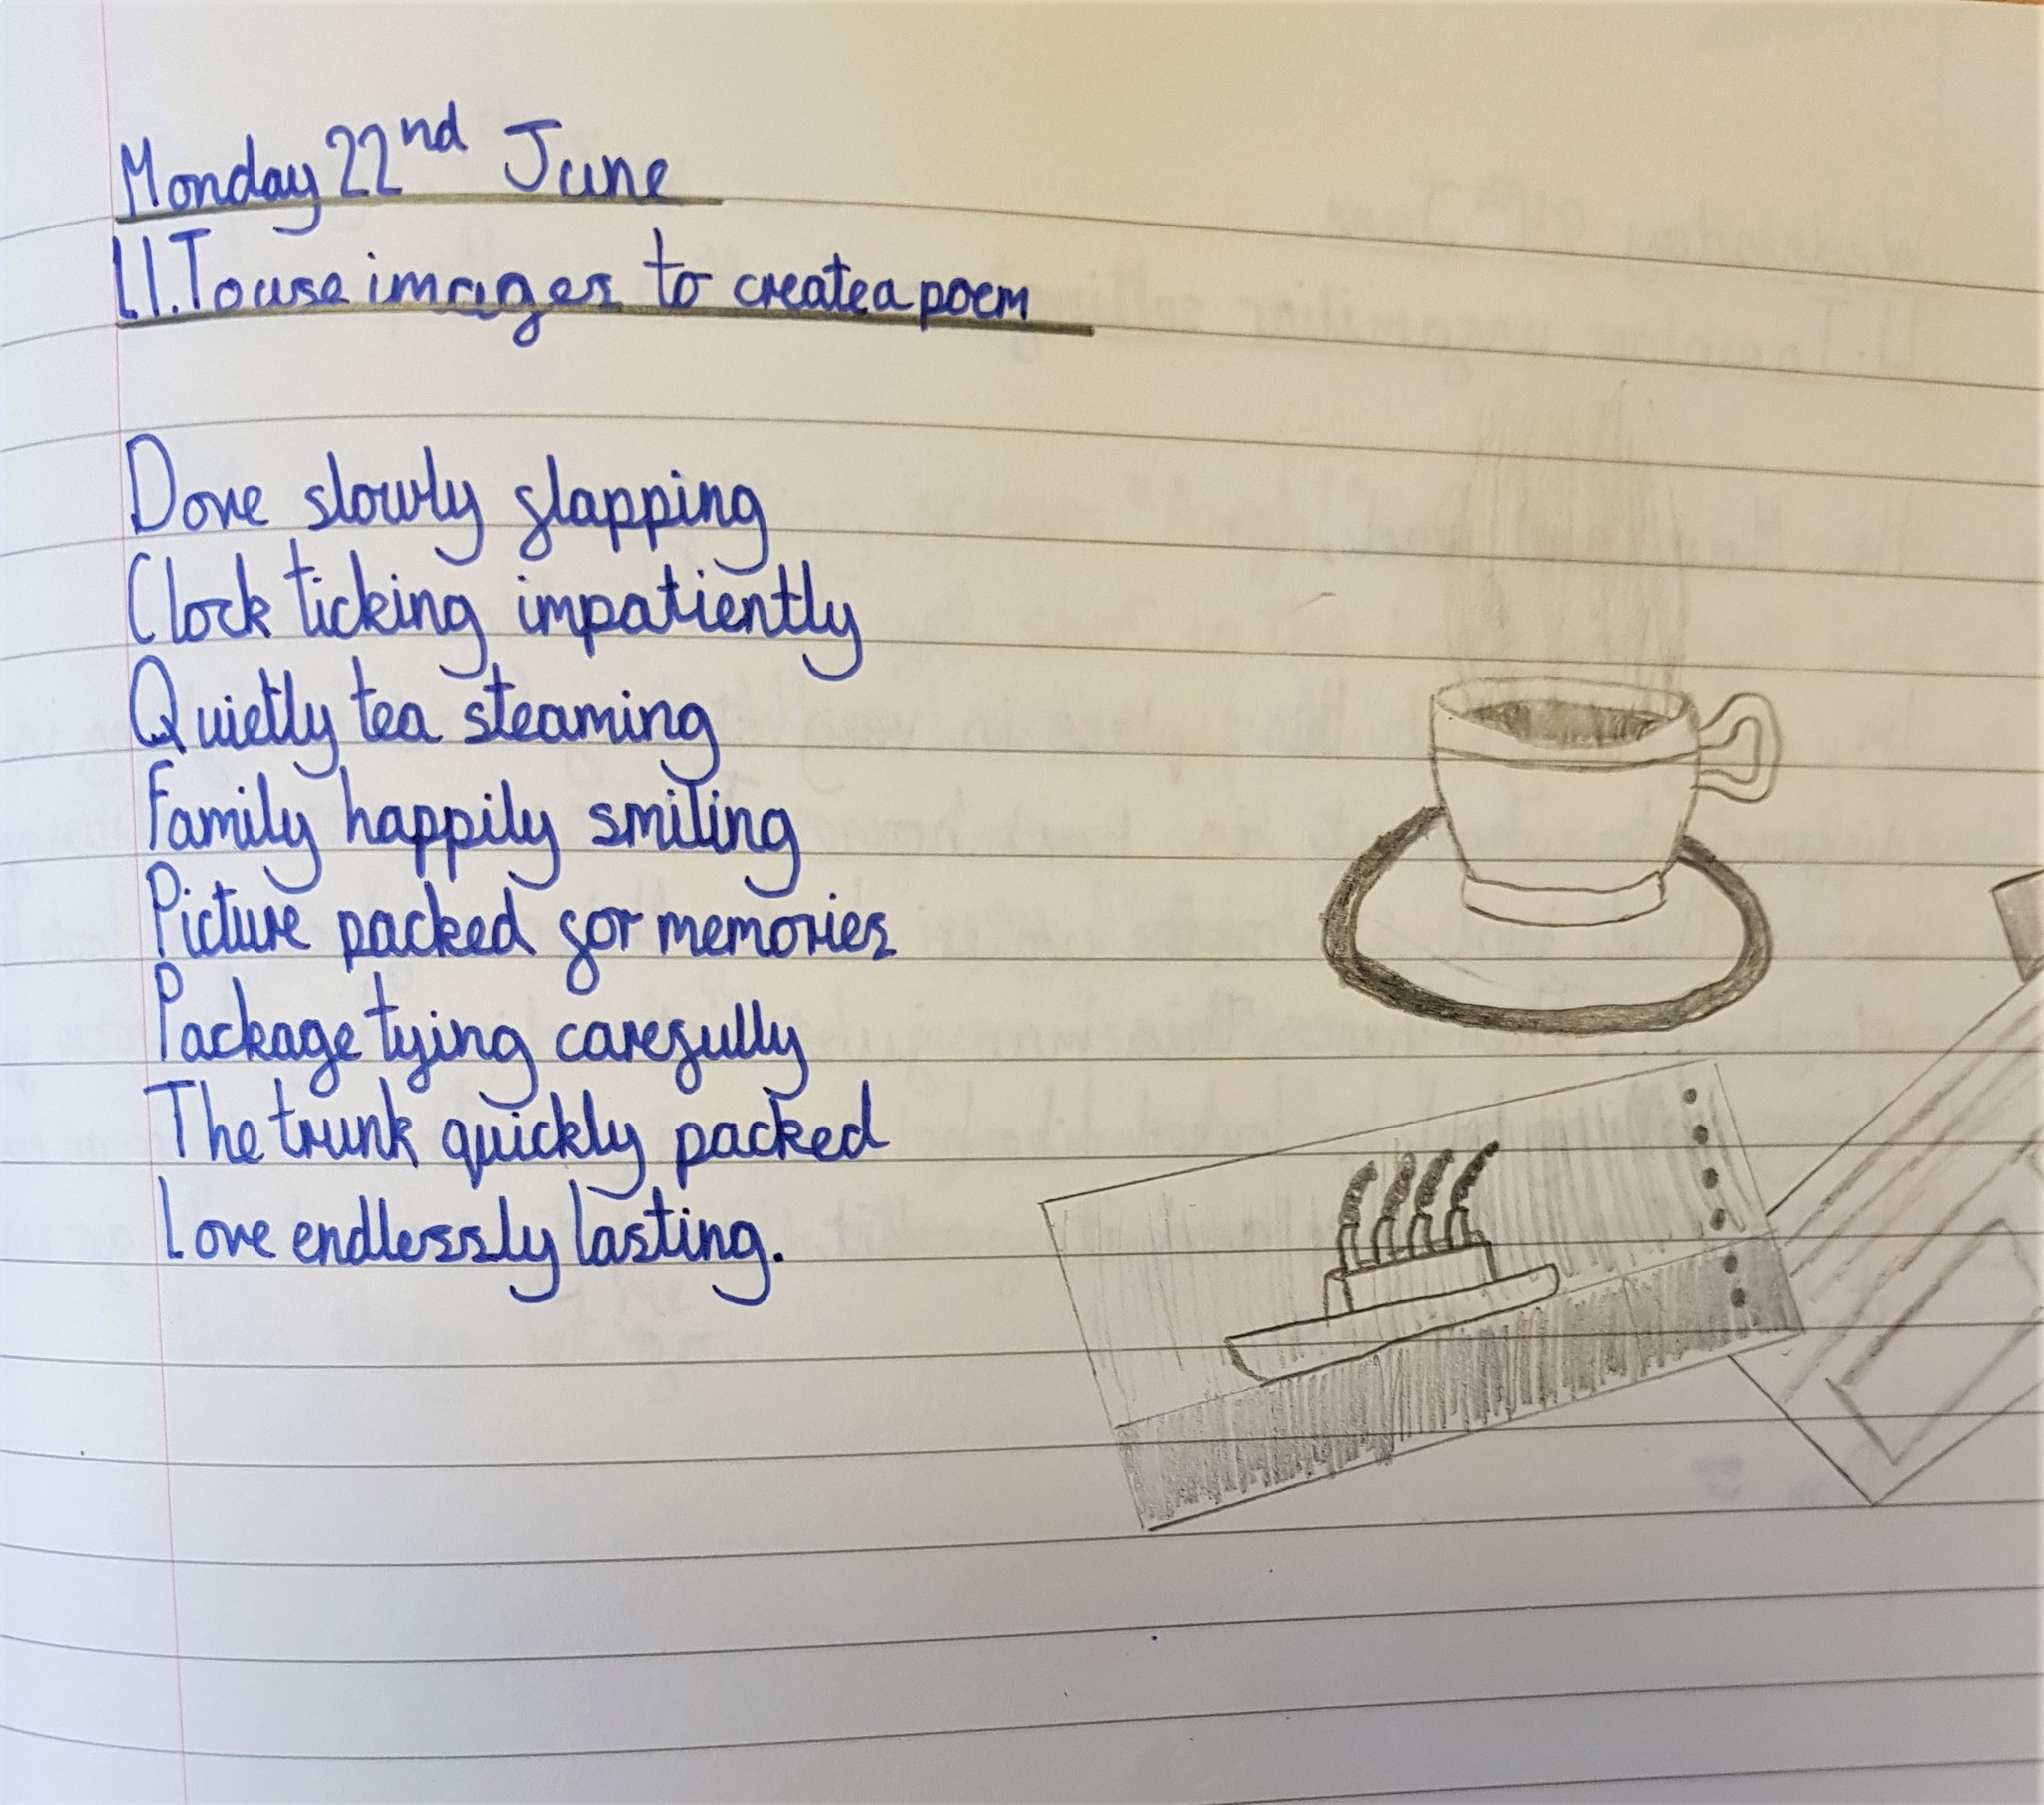 Monday 22nd June
LI. To use images to create a poem
Dove slowly flapping
Clock ticking impatiently
Quietly tea steaming
Family happily smiling
Picture packed for memories
Package tying carefully
The trunk quickly packed
Love endlessly lasting.